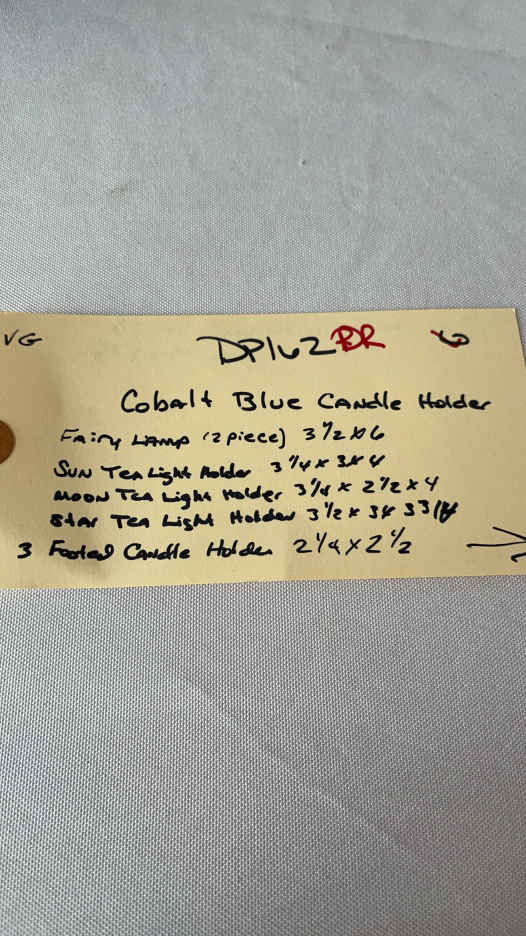 VG DP162 DR 6
Cobalt Blue Candle Holder
Fairy Lamp (2 piece) 3 1/2 x 6
Sun Tea Light Holder 3 1/4 x 3 x 4
Moon Tea Light Holder 3 1/4 x 2 1/2 x 4
Star Tea Light Holder 3 1/2 x 3 x
3 Footed Candle Holder 2 1/4 x 2 1/2